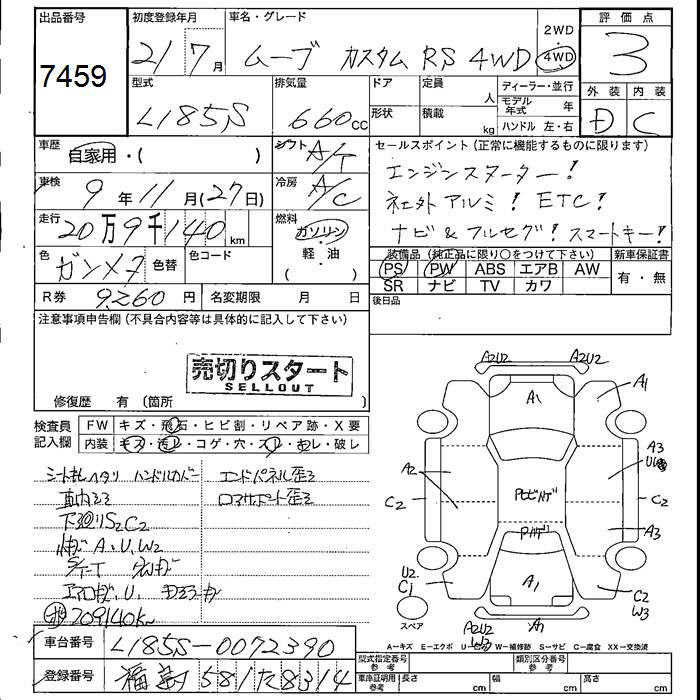 出品番号
7459
初度登録年月
21 7 月
車名・グレード
ムーブ カスタム RS 4WD
2WD
4WD
評価点
3
型式
L185S
排気量
660 cc
ドア
形状
定員
人
積載
kg
ディーラー・並行
モデル年式 年
ハンドル 左・右
外装 内装
D C
車歴
自家用・( )
シフト
A/T
セールスポイント(正常に機能するものに限ります)
エンジンスターター!
社外アルミ! ETC!
ナビ&フルセグ! スマートキー!
車検
9 年 11 月(27日)
冷房
A/C
走行
20万9千140 km
燃料
ガソリン
軽・油
( )
色
ガンメタ
色替
色コード
装備品(純正品に限り○をつけて下さい)
PS PW ABS エアB AW
SR ナビ TV カワ
新車保証書
有・無
R券 9260 円
名変期限 月 日
後日品
注意事項申告欄(不具合内容等は具体的に記入して下さい)
売切りスタート
SELLOUT
修復歴 有(箇所 )
検査員記入欄
FW キズ・飛石・ヒビ割・リペア跡・X要
内装 キズ・汚レ・コゲ・穴・スレ・キレ・破レ
ハンドルカバー
エンドパネル歪ミ
下回りS2C2
A、U、W2
209140k
A2U2 A2U2
A1 A1
A2
A3
C2 C2
A3
U2
C1
A1
C2
W3
スペア
A2U2
W2
A1
A-キズ E-エクボ U-ヒコミ W-補修跡 S-サビ C-腐食 XX-交換済
車台番号
L185S-0072390
登録番号
581 8314
型式指定番号
参考
類別区分番号
参考
車庫証明用
参考
長さ cm
幅 cm
高さ cm